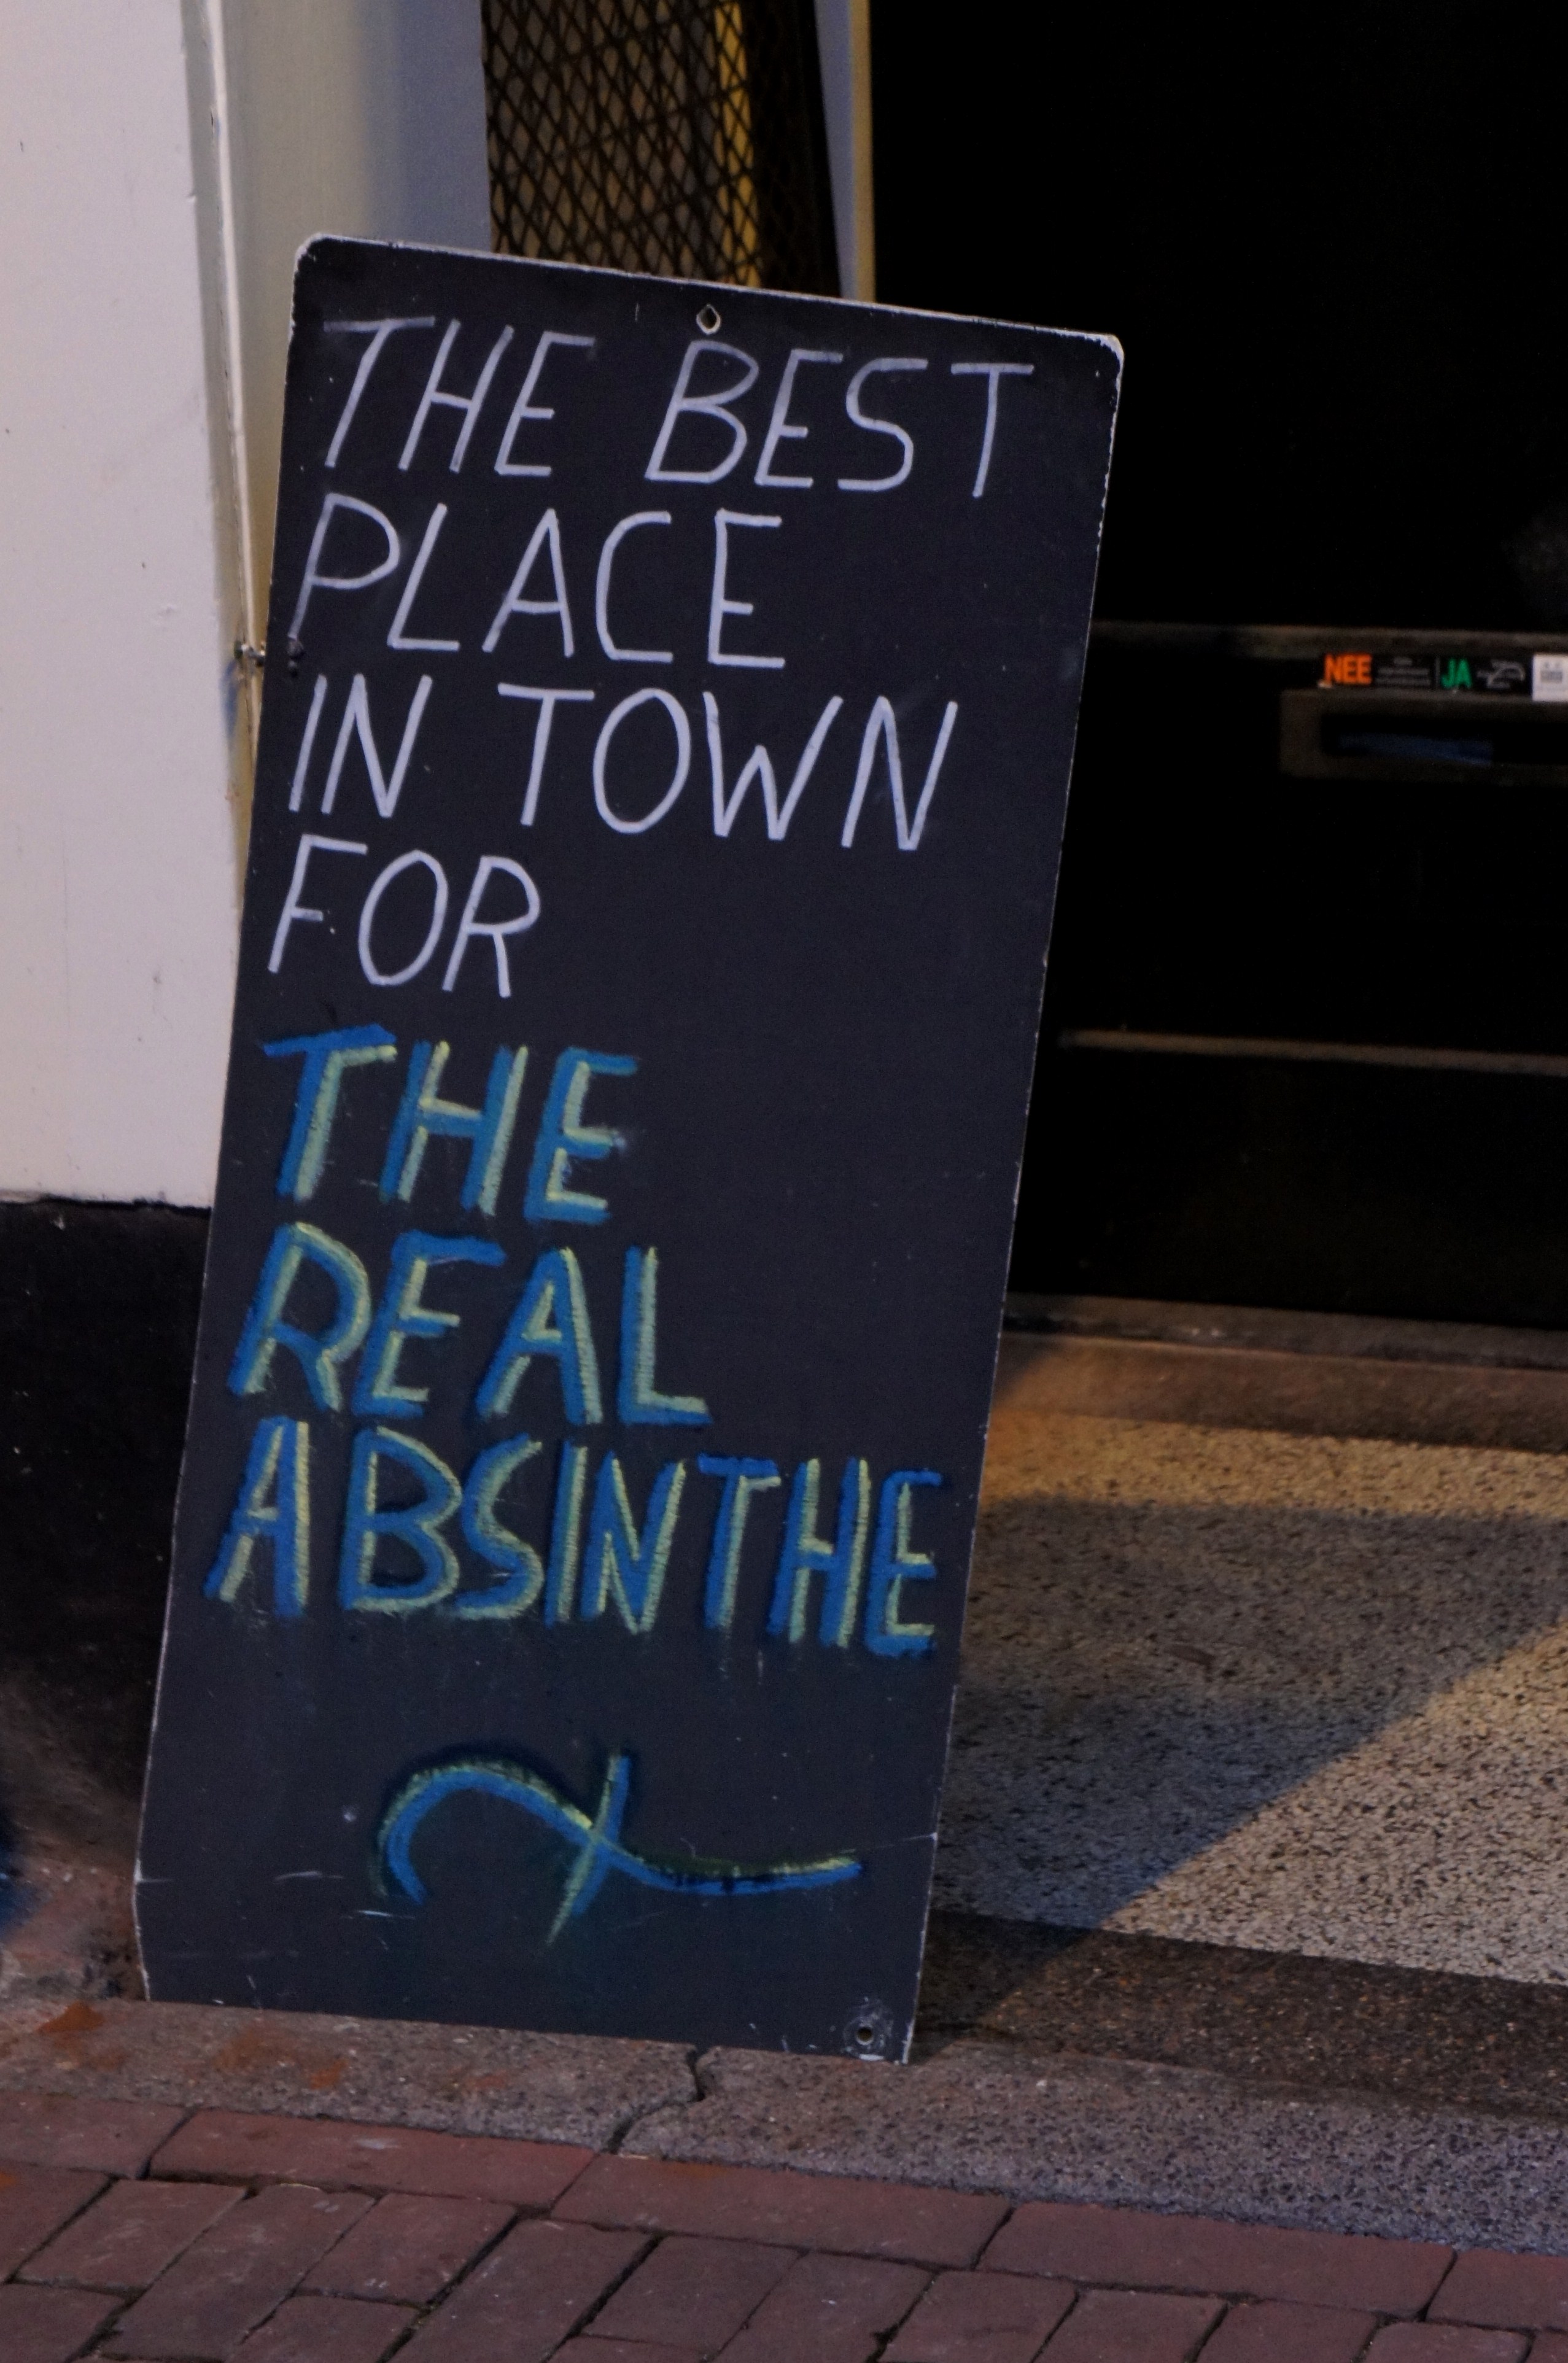 THE BEST
PLACE
IN TOWN
FOR
THE
REAL
ABSINTHE
NEE JA